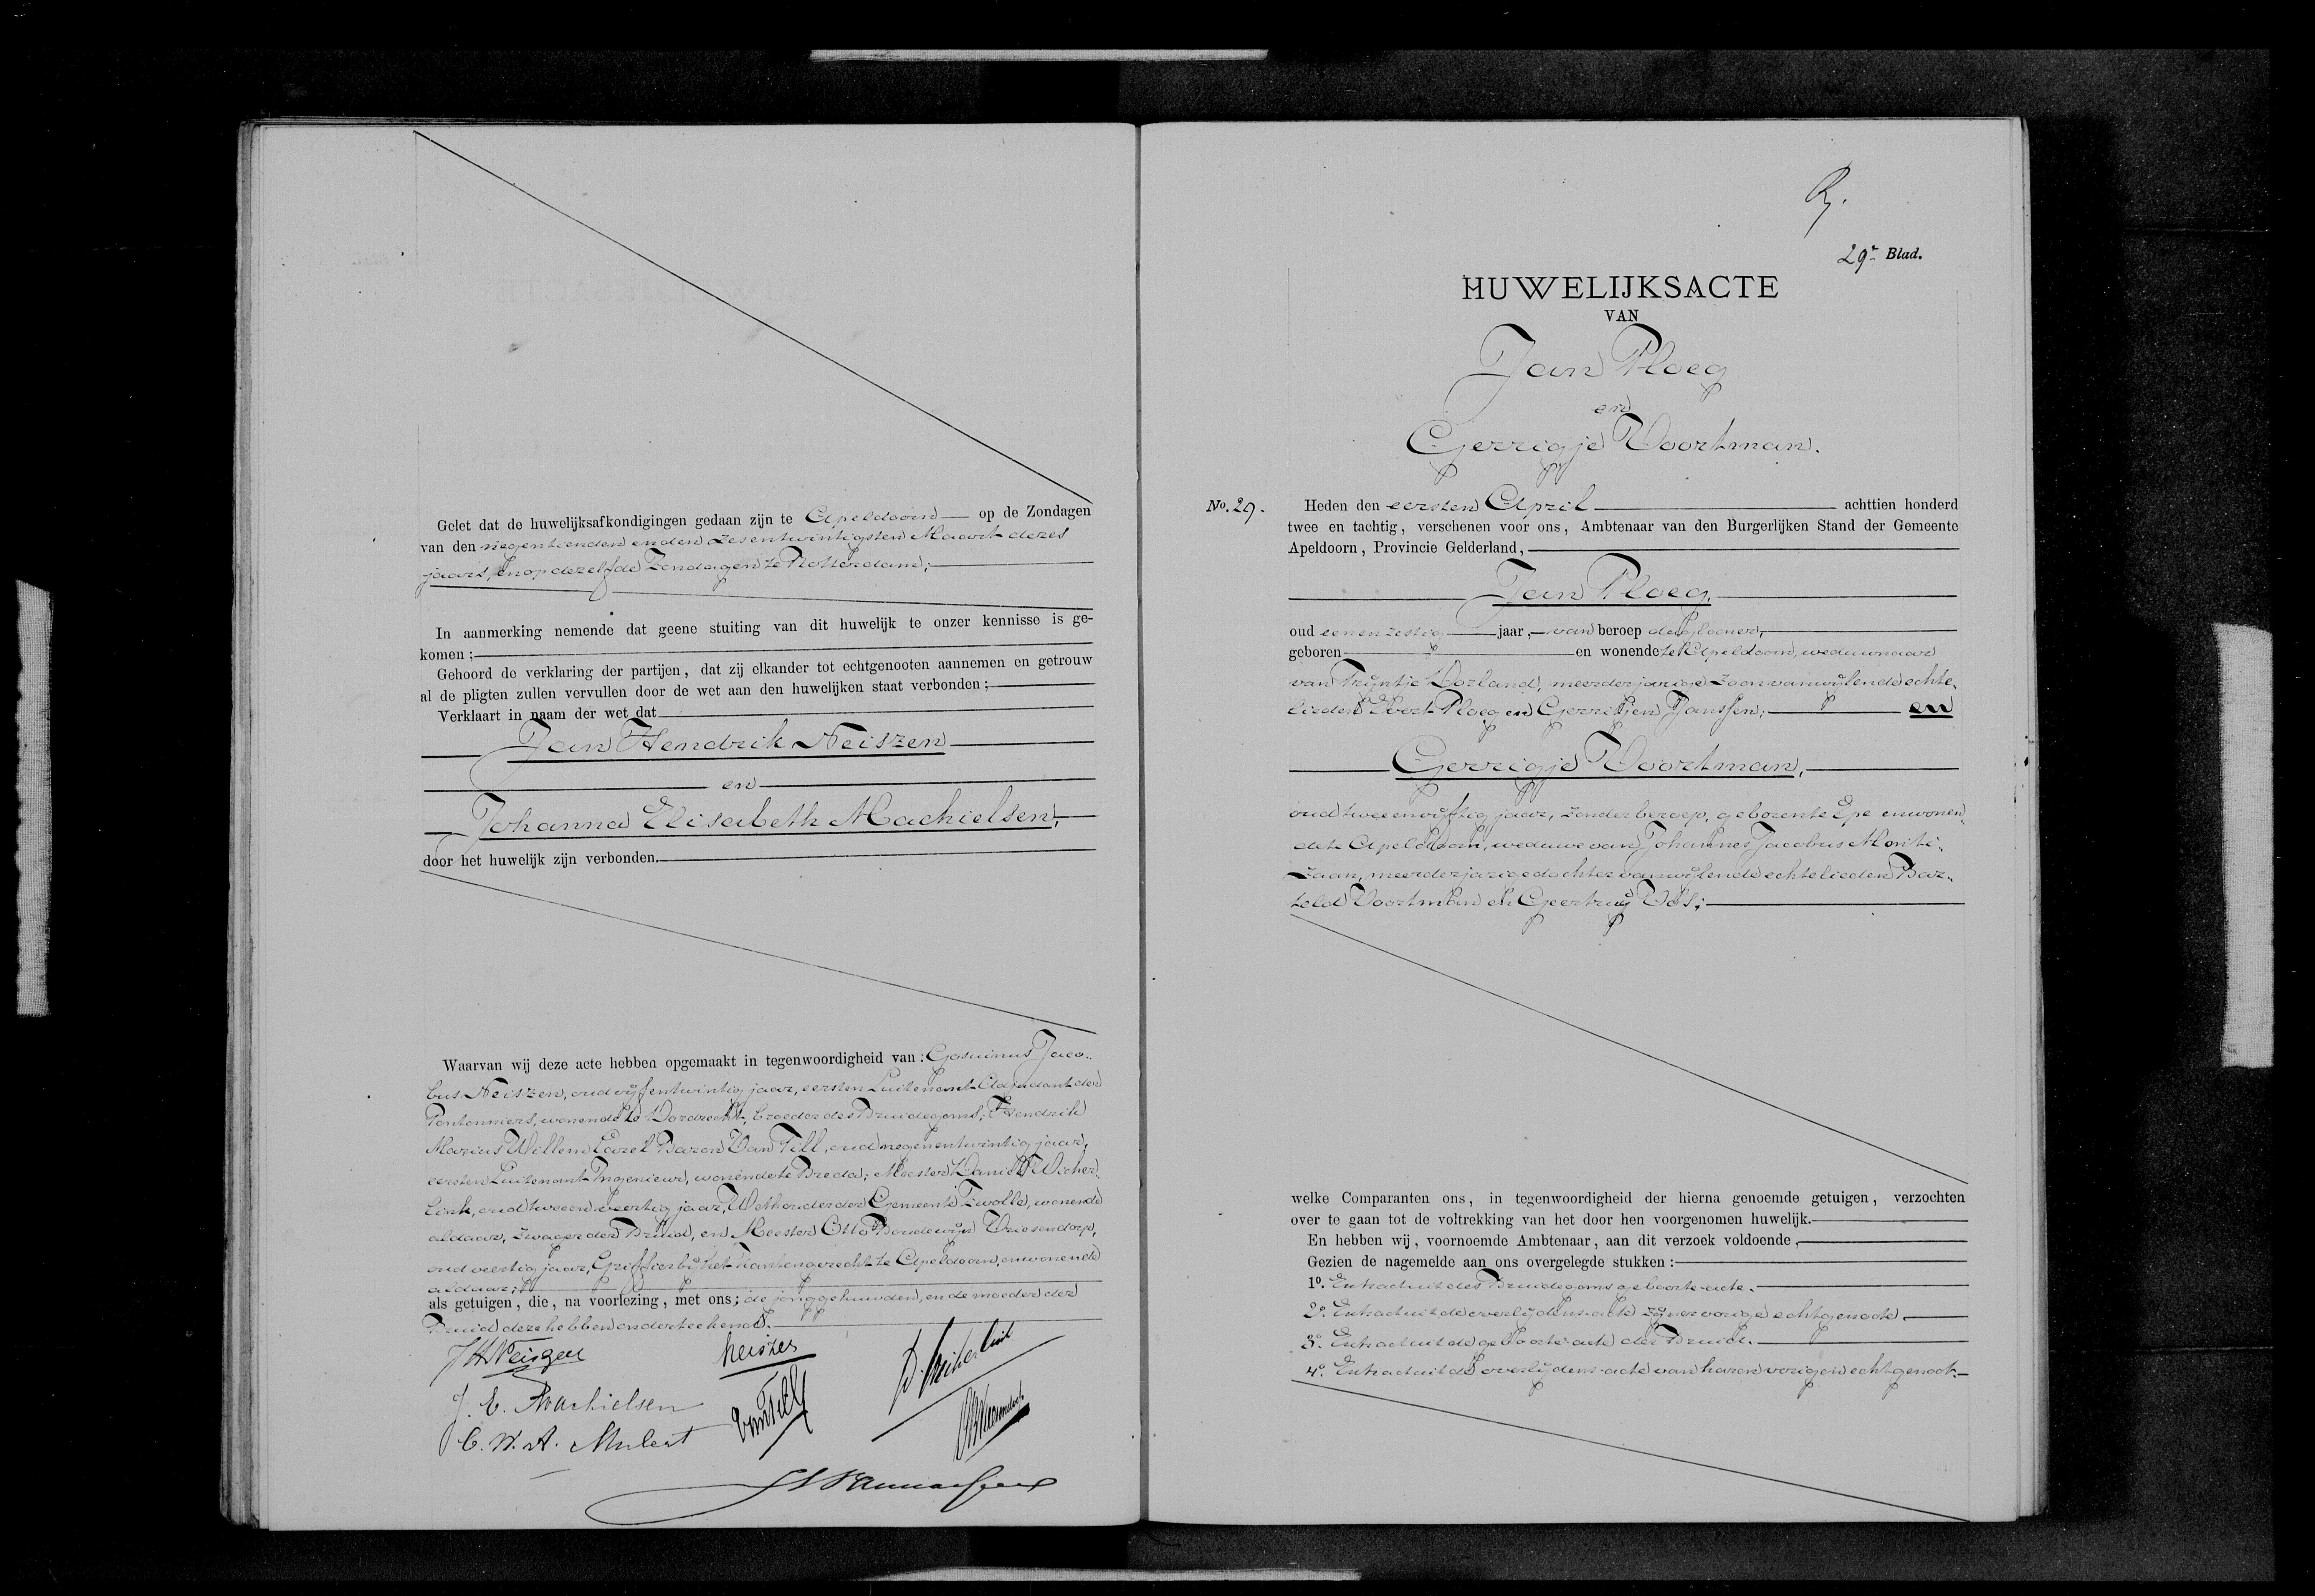 Gelet dat de huwelijksafkondigingen gedaan zijn te Apeldoorn op de Zondagen
van den negentienden en den zesentwintigsten Maart dezes
jaars, en op dezelfde Zondagen te Rotterdam;
In aanmerking nemende dat geene stuiting van dit huwelijk te onzer kennisse is ge-
komen;
Gehoord de verklaring der partijen, dat zij elkander tot echtgenooten aannemen en getrouw
al de pligten zullen vervullen door de wet aan den huwelijken staat verbonden;
Verklaart in naam der wet dat
Jan Hendrik Neiszen
en
Johanna Elisabeth Machielsen,
door het huwelijk zijn verbonden.
Waarvan wij deze acte hebben opgemaakt in tegenwoordigheid van: Gosuinus Jaco-
bus Neiszen, oud vijfentwintig jaar, eersten Luitenant Adjudant der
Pontonniers, wonende te Dordrecht, broeder des Bruidegoms; Hendrik
Marius Willem Carel Baron Van Till, oud negenentwintig jaar,
eersten Luitenant Ingenieur, wonende te Breda; Meester Daniel Wicher-
link, oud tweeenveertig jaar, Wethouder der Gemeente Zwolle, wonende
aldaar, zwager der Bruid, en Meester Otto Boudewijn Vriesendorp,
oud veertig jaar, Griffier bij het Kantongerecht te Apeldoorn, en wonende
aldaar;
als getuigen, die, na voorlezing, met ons; de jonggehuwden, en de moeder der
Bruid deze hebben onderteekend.
JH Neiszen
Neiszen
J. E. Machielsen
VanTill
C. W. A. Mulert
29e Blad.
HUWELIJKSACTE
VAN
Jan Ploeg
en
Gerrigje Voortman.
No. 29. Heden den eersten April achttien honderd
twee en tachtig, verschenen voor ons, Ambtenaar van den Burgerlijken Stand der Gemeente
Apeldoorn, Provincie Gelderland,
Jan Ploeg,
oud eenenzestig jaar, van beroep dagloner,
geboren en wonende te Apeldoorn, weduwnaar
van Trijntje Dorland, meerderjarige zoon van wijlen de echte-
lieden Evert Ploeg en Gerritjen Janssen; en
Gerrigje Voortman,
oud tweeenvijftig jaar, zonder beroep, geboren te Epe en wonen-
de te Apeldoorn, weduwe van Johannes Jacobus Monti-
zaan, meerderjarige dochter van wijlen de echtelieden Bar-
teld Voortman en Geertruij Vos;
welke Comparanten ons, in tegenwoordigheid der hierna genoemde getuigen, verzochten
over te gaan tot de voltrekking van het door hen voorgenomen huwelijk.
En hebben wij, voornoemde Ambtenaar, aan dit verzoek voldoende,
Gezien de nagemelde aan ons overgelegde stukken:
1o. Extract uit des Bruidegoms geboorte-acte.
2o. Extract uit de overlijdens-acte zijner vorige echtgenoote.
3o. Extract uit de geboorte-acte der Bruid.
4o. Extract uit de overlijdens-acte van haren vorigen echtgenoot.